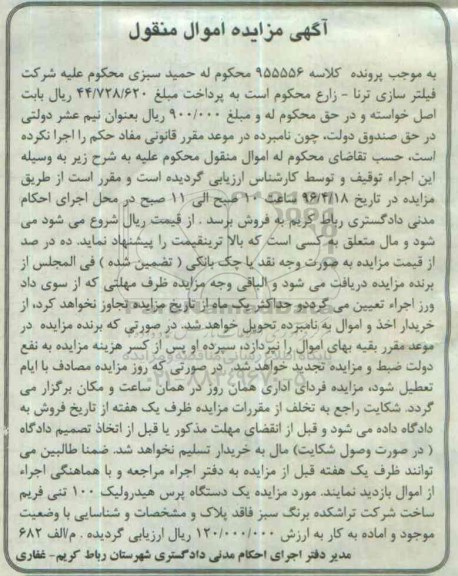 آگهی مزایده اموال منقول
به موجب پرونده کلاسه ۹۵۵۵۵۶ محکوم له حمید سبزی محکوم علیه شرکت
فیلتر سازی ترنا - زارع محکوم است به پرداخت مبلغ ۴۴/۷۲۸/۶۲۰ ریال بابت
اصل خواسته و در حق محکوم له و مبلغ ۹۰۰/۰۰۰ ریال بعنوان نیم عشر دولتی
در حق صندوق دولت، چون نامبرده در موعد مقرر قانونی مفاد حکم را اجرا نکرده
است، حسب تقاضای محکوم له اموال منقول محکوم علیه به شرح زیر به وسیله
این اجراء توقیف و توسط کارشناس ارزیابی گردیده است و مقرر است از طریق
مزایده در تاریخ ۹۶/۴/۱۸ ساعت ۱۰ صبح الی ۱۱ صبح در محل اجرای احکام
مدنی دادگستری رباط کریم به فروش برسد . از قیمت ریال شروع می شود می
شود و مال متعلق به کسی است که بالا ترینقیمت را پیشنهاد نماید. ده در صد
از قیمت مزایده به صورت وجه نقد یا چک بانکی ( تضمین شده ) فی المجلس از
برنده مزایده دریافت می شود و الباقی وجه مزایده ظرف مهلتی که از سوی داد
ورز اجراء تعیین می گرددو حداکثر یک ماه از تاریخ مزایده تجاوز نخواهد کرد، از
خریدار اخذ و اموال به نامبرده تحویل خواهد شد. در صورتی که برنده مزایده در
موعد مقرر بقیه بهای اموال را نپردازد، سپرده او پس از کسر هزینه مزایده به نفع
دولت ضبط و مزایده تجدید خواهد شد. در صورتی که روز مزایده مصادف با ایام
تعطیل شود، مزایده فردای اداری همان روز در همان ساعت و مکان برگزار می
گردد. شکایت راجع به تخلف از مقررات مزایده ظرف یک هفته از تاریخ فروش به
دادگاه داده می شود و قبل از انقضای مهلت مذکور یا قبل از اتخاذ تصمیم دادگاه
( در صورت وصول شکایت) مال به خریدار تسلیم نخواهد شد. ضمنا طالبین می
توانند ظرف یک هفته قبل از مزایده به دفتر اجراء مراجعه و با هماهنگی اجراء
از اموال بازدید نمایند. مورد مزایده یک دستگاه پرس هیدرولیک ۱۰۰ تنی فریم
ساخت شرکت تراشکده برنگ سبز فاقد پلاک و مشخصات و شناسایی با وضعیت
موجود و اماده به کار به ارزش ۱۲۰/۰۰۰/۰۰۰ ریال ارزیابی گردیده . م/الف ۶۸۲
مدیر دفتر اجرای احکام مدنی دادگستری شهرستان رباط کریم- غفاری